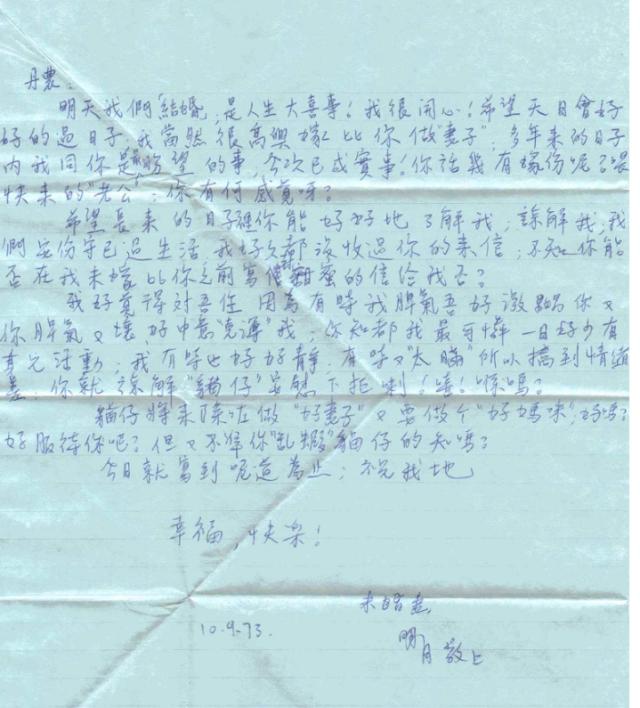 丹農：
明天我們"結婚"，是人生大喜事！我很開心！希望天日會好
好的過日子，我當然很高興嫁比你做"妻子"，多年來的日子
內我同你是最盼望的事，今次已成實事！你話幾有緣份呢？喂
快來的"老公"；你有何感覺呀？
希望長來的日子裡你能好好地了解我；諒解我；我
們安份守己過生活，我好久都沒收過你的來信；不知你能
否在我未嫁比你之前寫封甜蜜的信給我否？
我好覺得對吾住，因為有時我脾氣吾好激嬲你，又
你脾氣又壞，好中意我，你知都我最可憐一日好少有
活動；我有時也好好靜，有時又"太"所以搞到情緒
差，你就諒解"貓仔"安慰下佢喇！
貓仔將來除左做"好妻子"又要做个"好媽咪"，好嗎？
好服待你吧？但又不準你"亂"貓仔的知嗎？
今日就寫到呢這為止；祝我地
幸福，快樂！
未婚妻，
10.9.73.
明月敬上